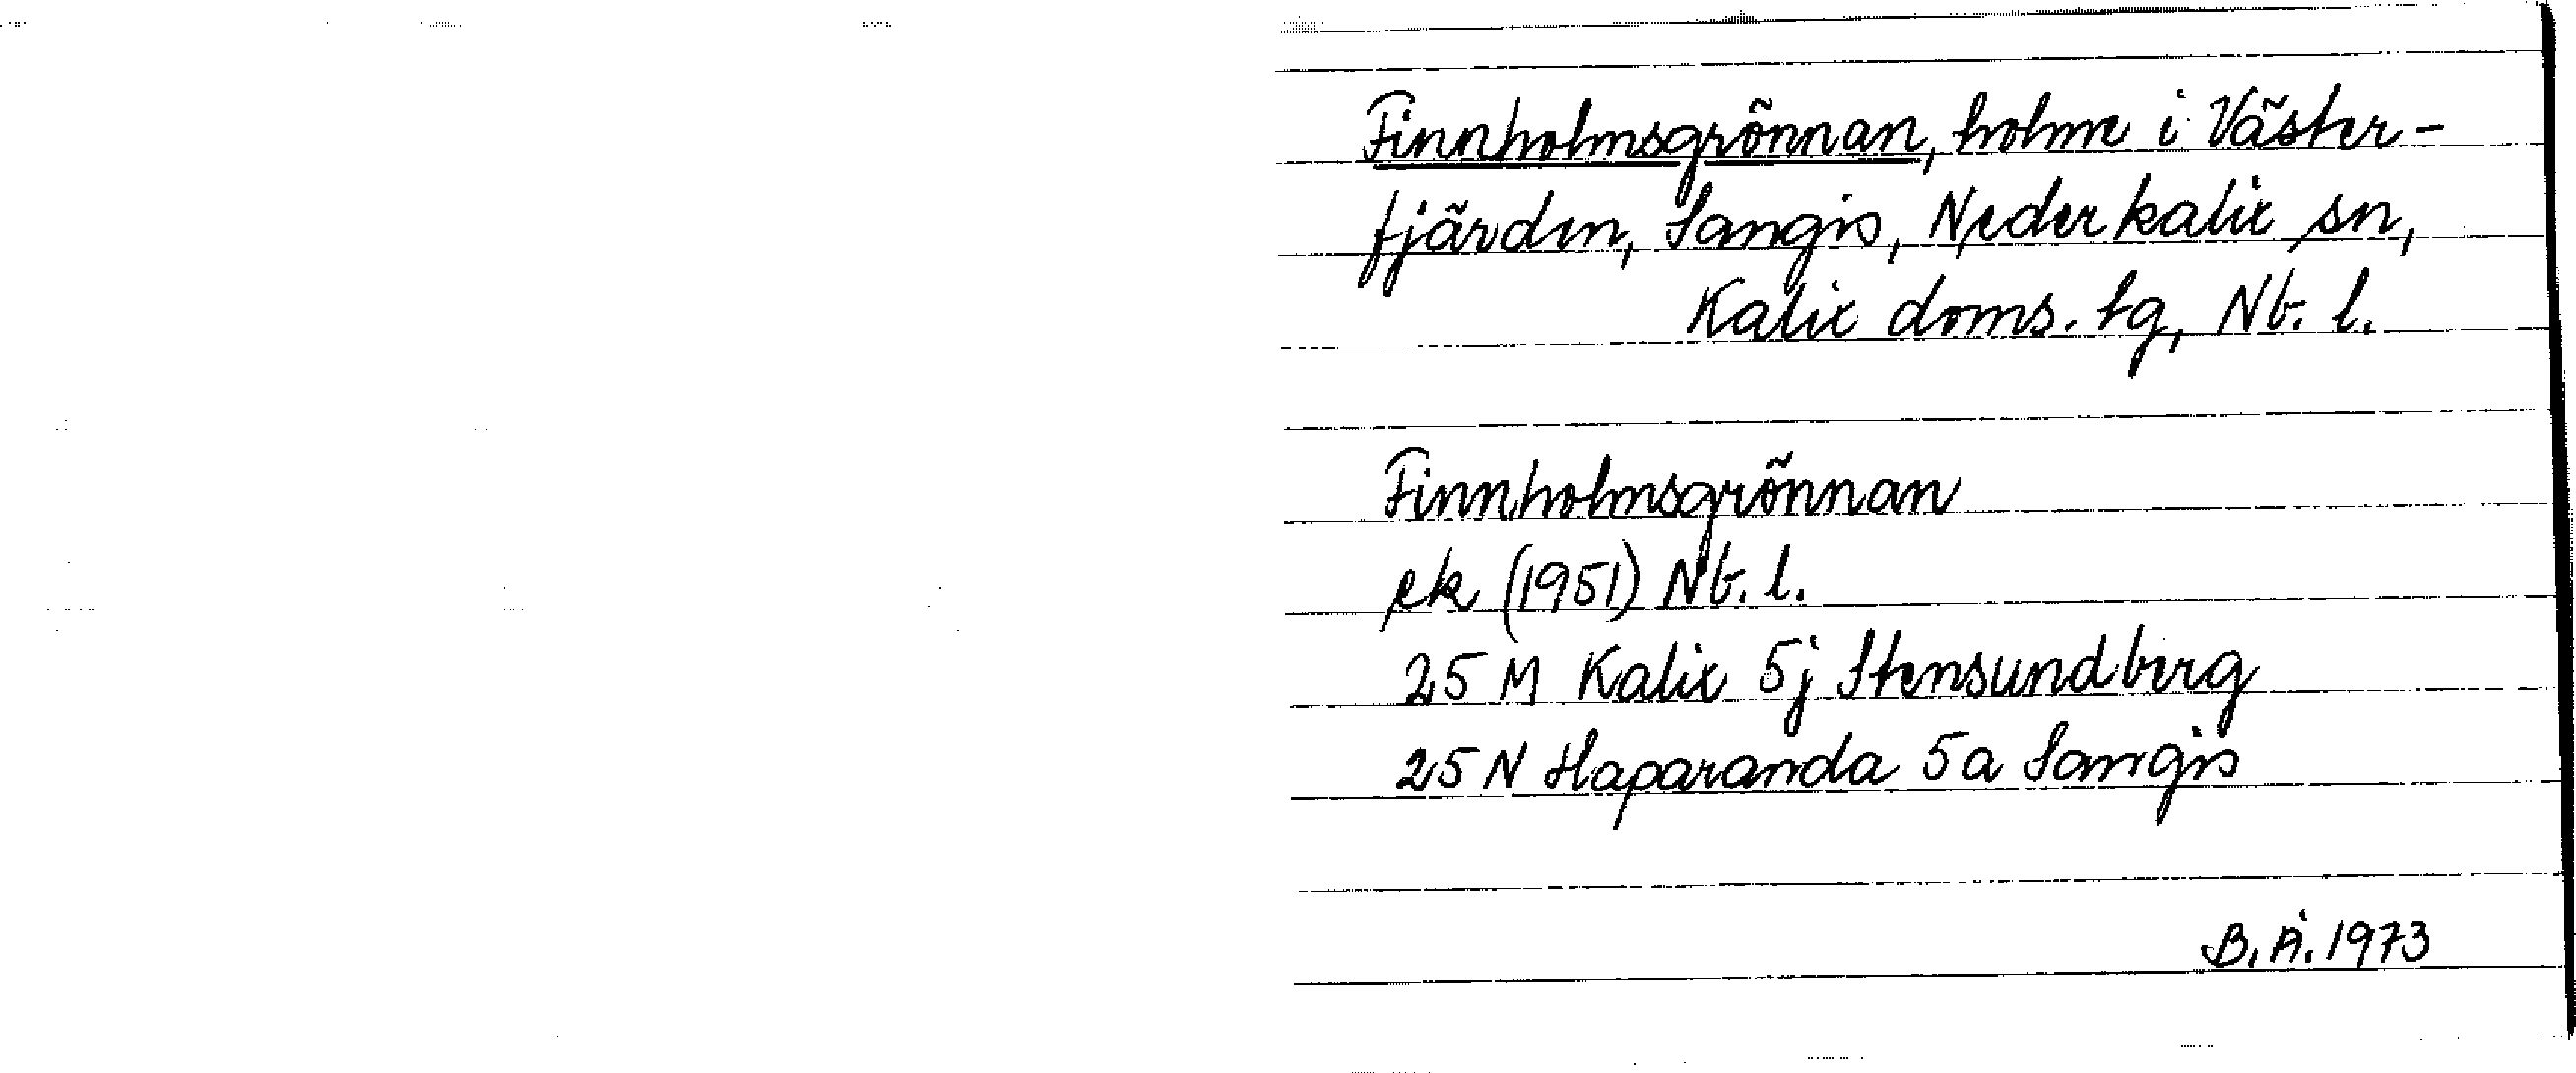 Finnholmsgrönnan, holme i Väster-
fjärden, Sangis, Nederkalix sn,
Kalix doms. tg, Nb. l.
Finnholmsgrönnan
ek (1951) Nb. l.
25 M Kalix 5j Stensundberg
25 N Haparanda 5a Sangis
B.Å. 1973